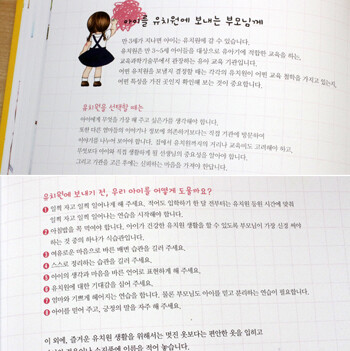 아이를 유치원에 보내는 부모님께
만 3세가 지나면 아이는 유치원에 갈 수 있습니다.
유치원은 만 3~5세 아이들을 대상으로 유아기에 적합한 교육을 하는,
교육과학기술부에서 관장하는 유아 교육 기관입니다.
어떤 유치원을 보낼지 결정할 때는 각각의 유치원이 어떤 교육 철학을 가지고 있는지,
어떤 특성을 가진 곳인지 확인해 보는 것이 중요합니다.
유치원을 선택할 때는
아이에게 무엇을 가장 해 주고 싶은가를 생각해야 합니다.
또한 다른 엄마들의 이야기나 정보에 의존하기보다는 직접 기관에 방문하여
이야기를 나누어 보아야 합니다. 집에서 유치원까지의 거리나 교육비도 고려해야 하고,
무엇보다 아이와 직접 생활하게 될 선생님의 중요성을 알아야 합니다.
그리고 기관을 고른 후에는 신뢰하는 마음을 가져야 한답니다.
유치원에 보내기 전, 우리 아이를 어떻게 도울까요?
1 일찍 자고 일찍 일어나게 해 주세요. 적어도 입학하기 한 달 전부터는 유치원 등원 시간에 맞춰
일찍 자고 일찍 일어나는 연습을 시작해야 합니다.
2 아침밥을 꼭 먹여야 합니다. 아이가 건강한 유치원 생활을 할 수 있도록 부모님이 가장 신경 써야
하는 것 중의 하나가 식습관입니다.
3 여유로운 마음으로 바른 배변 습관을 길러 주세요.
4 스스로 정리하는 습관을 길러 주세요.
5 아이의 생각과 마음을 바른 언어로 표현하게 해 주세요.
6 유치원에 대한 기대감을 심어 주세요.
7 엄마와 기쁘게 헤어지는 연습을 합니다. 물론 부모님도 아이를 믿고 분리하는 연습이 필요합니다.
8 아이를 믿어 주고, 긍정의 말을 자주 해 주세요.
이 외에, 즐거운 유치원 생활을 위해서는 멋진 옷보다는 편안한 옷을 입히고
이름을 적어 놓습니다.